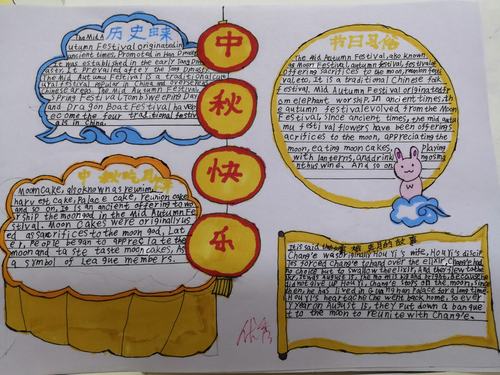 历史由来
The Mid
utumn Festival originated in
ancient times, Promoted in Han Dynasty
It was established in the early Tang Dyn
asty. It Prevailed after the Song Dynasty
The Mid Autumn Festival is a traditional
Chinese areas. The Mid Autumn Festival
Spring Festival, Tomb Sweeping Day
and Dragon Boat Festival have b
ecome the four traditional festiv
als in China.
中
秋
快
乐
节日习俗
The Mid Autumn Festival, also known
as Moon Festival, autumn festival
Offering sacrifices to the moon, reunion fes
tival etc. It is a traditional Chinese folk
festival. Mid Autumn Festival originated fr
om elephant worship. In ancient times. Th
autumn festival evolved from the Moon
Festival, since ancient times, the mid aut
mu festival flowers have been offering
acrifices to the moon, appreciating the
moon, eating moon cakes, Playing
with lanterns, and drink
nthus wine. And so on
中秋吃月饼
Moon Cake, also known as reunion
harvest Cake, Palace cake, reunion cake
and so on, It is an ancient offering to wor
ship the moon god in the Mid Autumn Fe
stival. Moon Cakes were originally us
ed as sacrifices to the moon god, Lat
er, People began to appreciate the
moon and taste taste moon cakes, As
a symbol of league members.
嫦娥奔月的故事
It is said that
Chang'e was originally Hou Yi's wife, Hou Yi's discip
les forced Chang'e to hand over the elixir, Chang'e had
no choice but to swallow the elixir, and
did not give up Hou Yi, Chang'e stops on the moon, since
then, he has lived in Guanghan Palace for a long time.
Hou Yi's heartache che went back home, so ever
y year on August 15, they put down a banque
t to the moon to reunite with Chang'e.